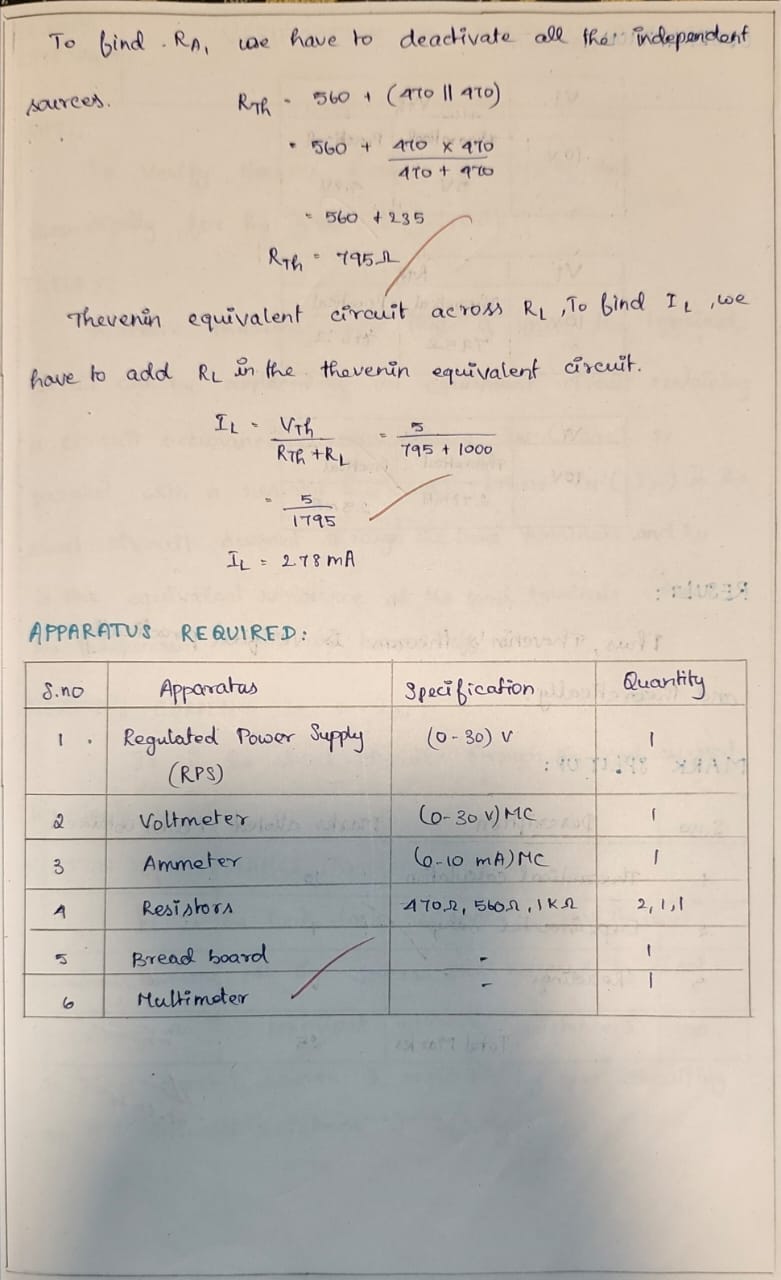 To find RA, we have to deactivate all the independent
sources.
RTh = 560 + (470 || 470)
= 560 + 470 x 470
470 + 470
= 560 + 235
RTh = 795Ω
Thevenin equivalent circuit across RL, To find IL, we
have to add RL in the thevenin equivalent circuit.
IL = VTh = 5
RTh + RL 795 + 1000
= 5
1795
IL = 2.78 mA
APPARATUS REQUIRED:
S.no Apparatus Specification Quantity
1. Regulated Power Supply (0-30) V 1
(RPS)
2 Voltmeter (0-30 V) MC 1
3 Ammeter (0-10 mA) MC 1
4 Resistors 470Ω, 560Ω, 1KΩ 2,1,1
5 Bread board - 1
6 Multimeter - 1